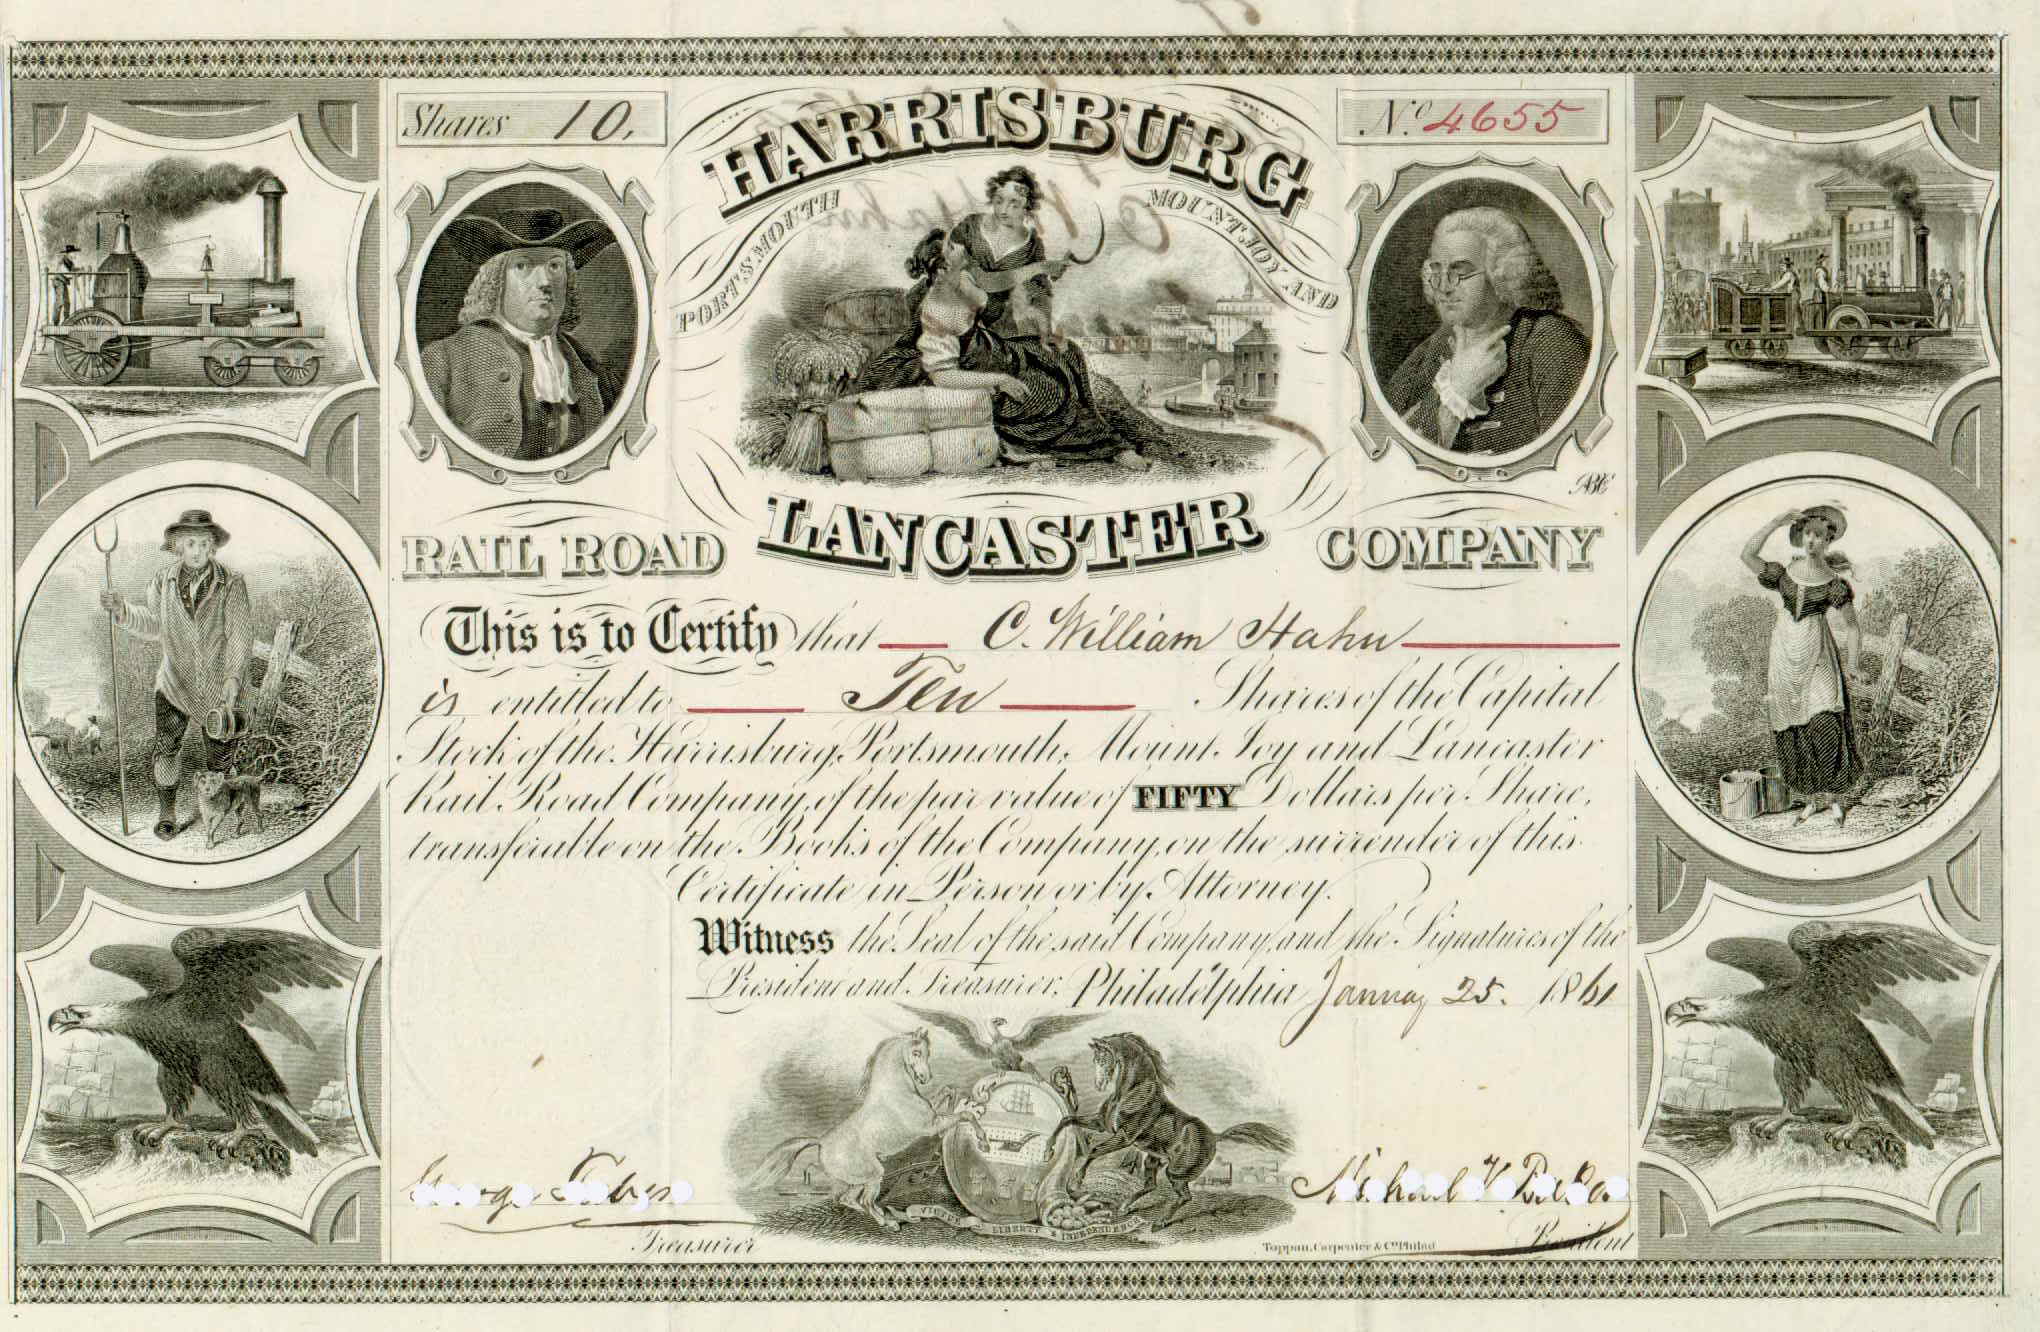 Shares 10.
No. 4655
HARRISBURG
PORTSMOUTH MOUNT JOY AND
LANCASTER
RAIL ROAD COMPANY
This is to Certify that C. William Hahn
is entitled to Ten Shares of the Capital
Stock of the Harrisburg, Portsmouth, Mount Joy and Lancaster
Rail Road Company, of the par value of FIFTY Dollars per Share,
transferable on the Books of the Company, on the surrender of this
Certificate in Person or by Attorney.
Witness the Seal of the said Company, and the Signatures of the
President and Treasurer. Philadelphia January 25. 1861
George Taber
Treasurer
VIRTUE LIBERTY & INDEPENDENCE
Toppan, Carpenter & Co. Philada
President